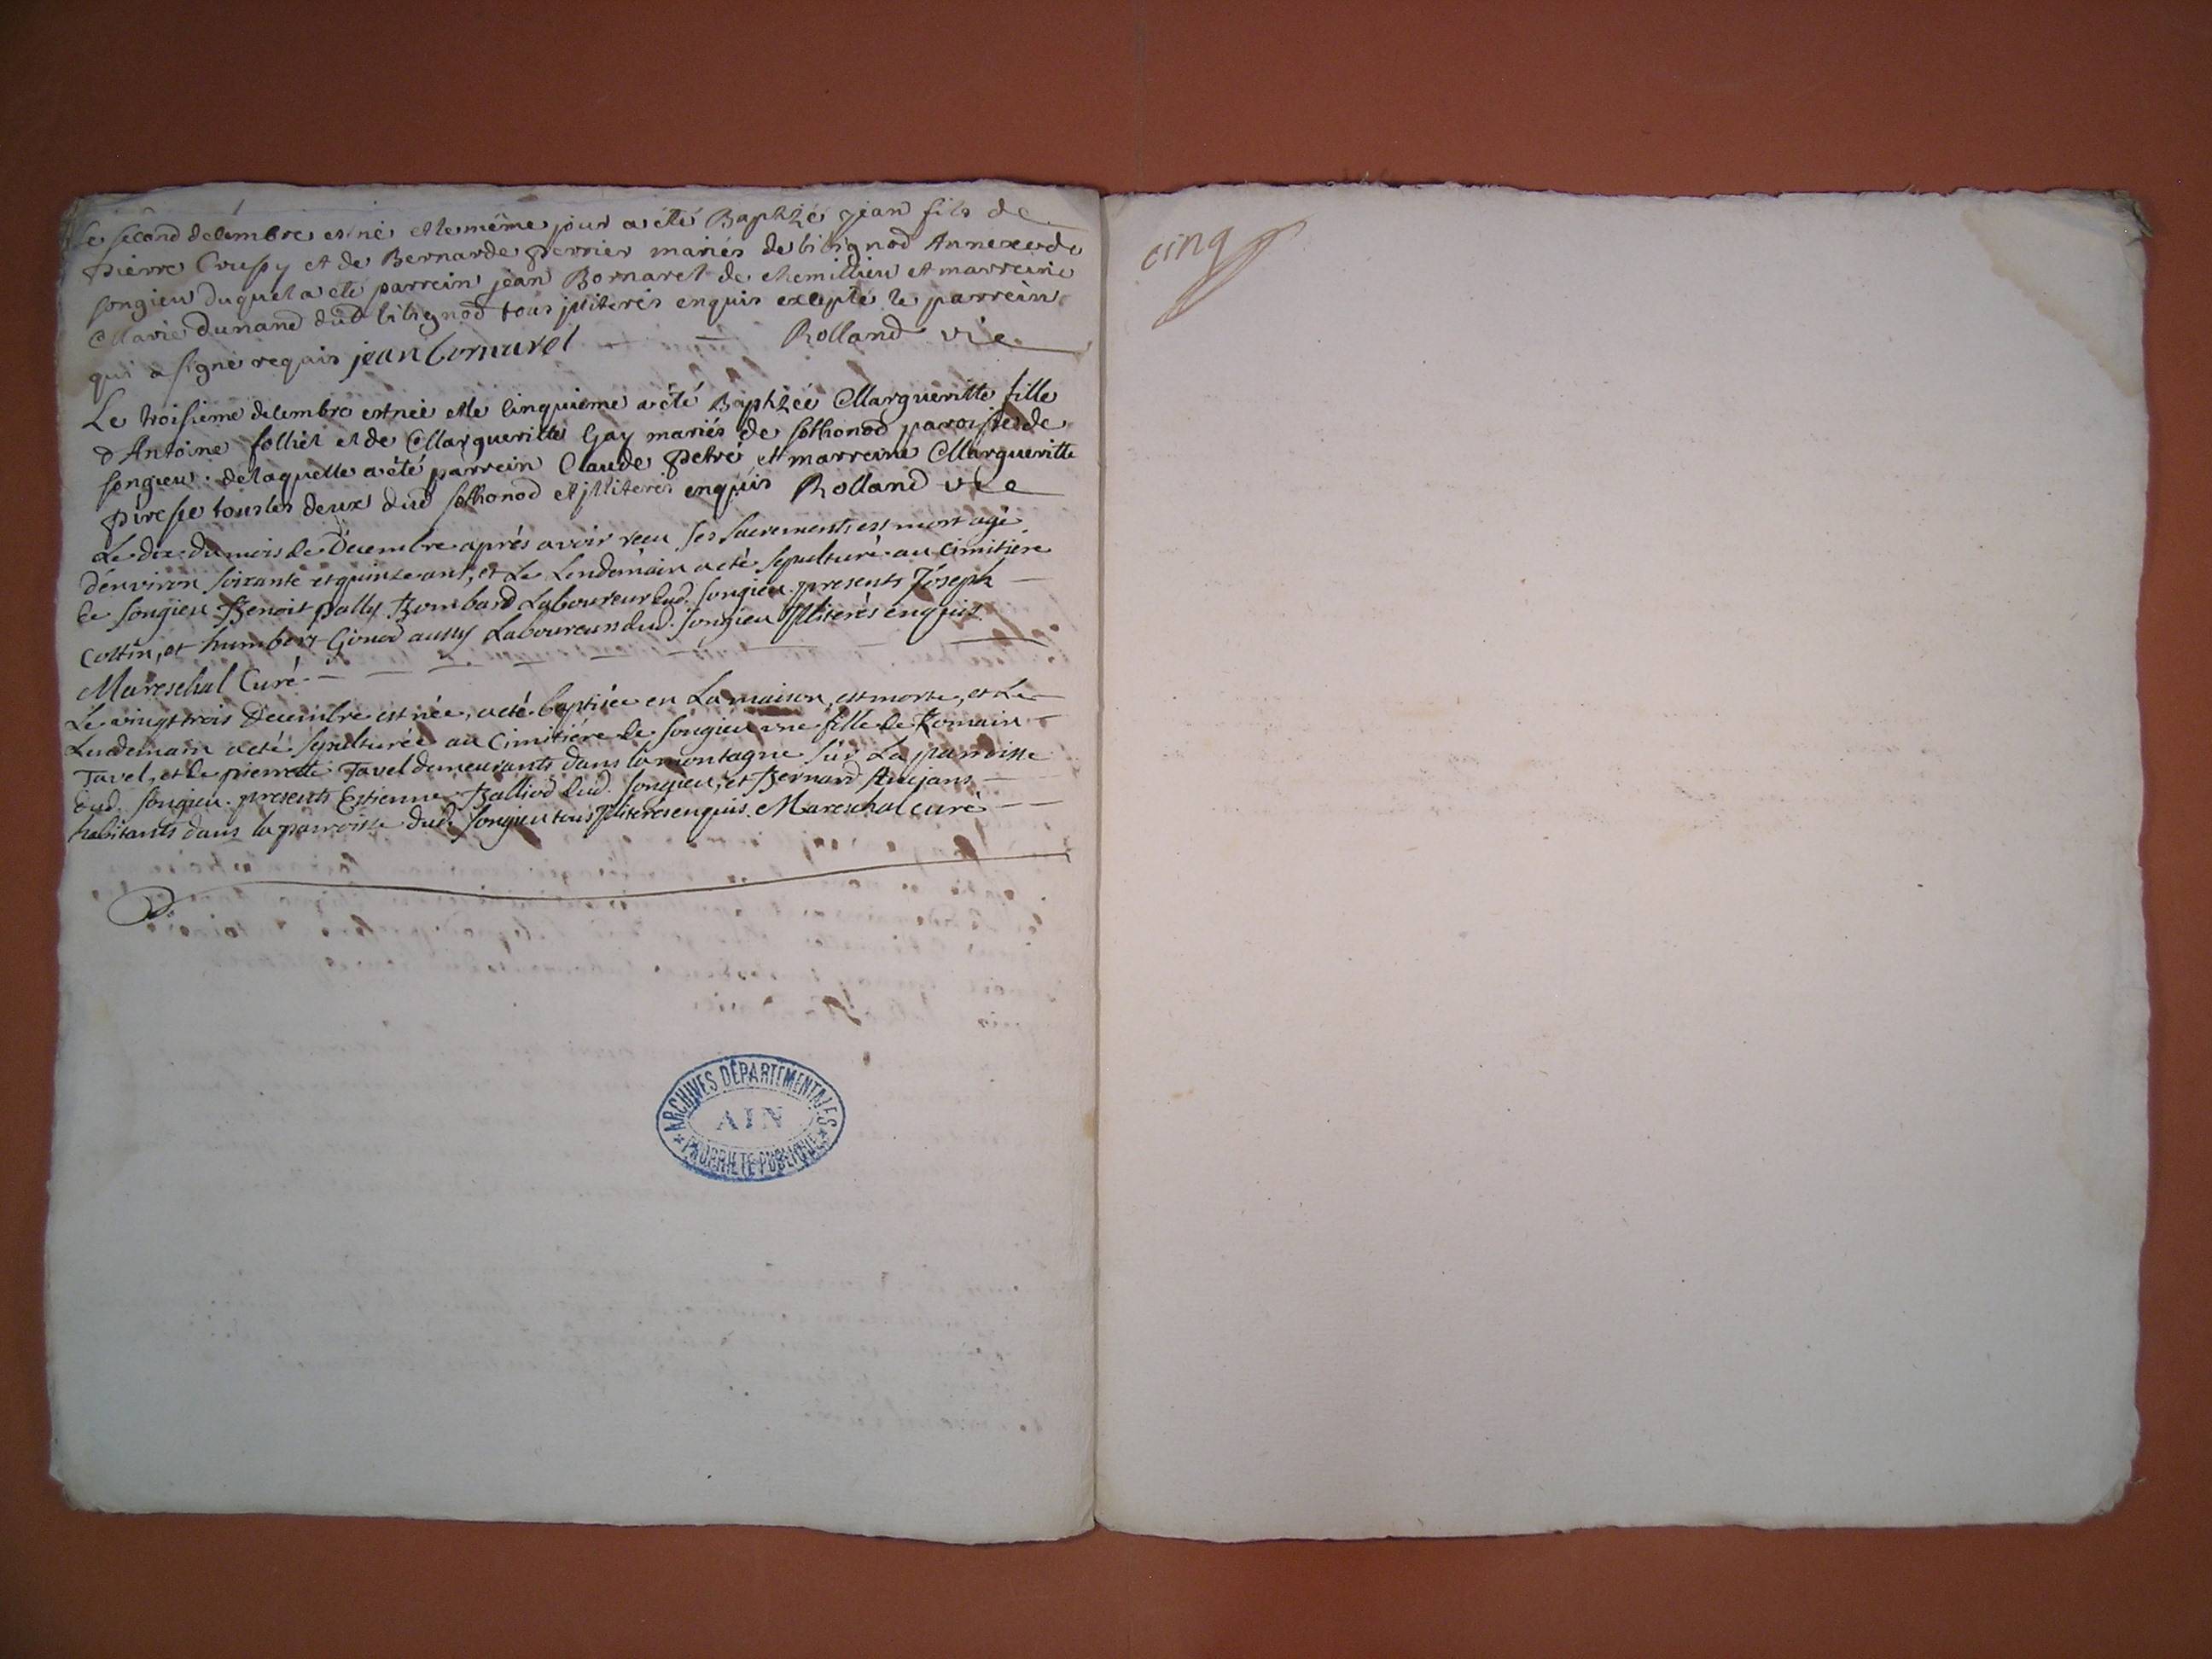 Le second decembre est né et le même jour a été Baptizé jean fils de
pierre Crussy et de Bernarde perrier mariés de bilignod Annexe de
songieu duquel a été parrein jean Bornarel de chemillieu et marreine
Marie Dunand dud. bilignod tous jlliterés enquis excepté le parrein
qui a signé requis jean bornarel Rolland vic
Le troisieme decembre est née et le cinquieme a été Baptizée Margueritte fille
d'Antoine folliet et de Margueritte Gay mariés de sothonod paroisse de
songieu. de laquelle a été parrein Claude petré et marreine Margueritte
tous les deux dud sothonod et jlliterés enquis Rolland vic
Le dix du mois de Decembre après avoir receu ses sacrements est mort agé
d'environ soixante et quinze ans, et Le Lendemain a eté sepulturé au cimitiére
de songieu Benoit pally Bombard Laboureur dud. songieu. presents Joseph
Cottin, et humbert Ginod aussy Laboureurs dud. songieu Jlliterés enquis
Mareschal Curé
Le vingt trois Decembre est née, a eté baptisée en La maison, est morte, et Le
Lendemain a eté sepulturée au Cimitiére de songieu une fille de Romain
Tavel, et de pierrette Tavel demeurants dans la montagne sur La parroisse
dud. songieu. presents Estienne Balliod dud. songieu, et Bernard
habitants dans la parroisse dud. songieu tous Jlliterés enquis. Mareschal curé
ARCHIVES DÉPARTEMENTALES
AIN
PROPRIETE PUBLIQUE
cinq